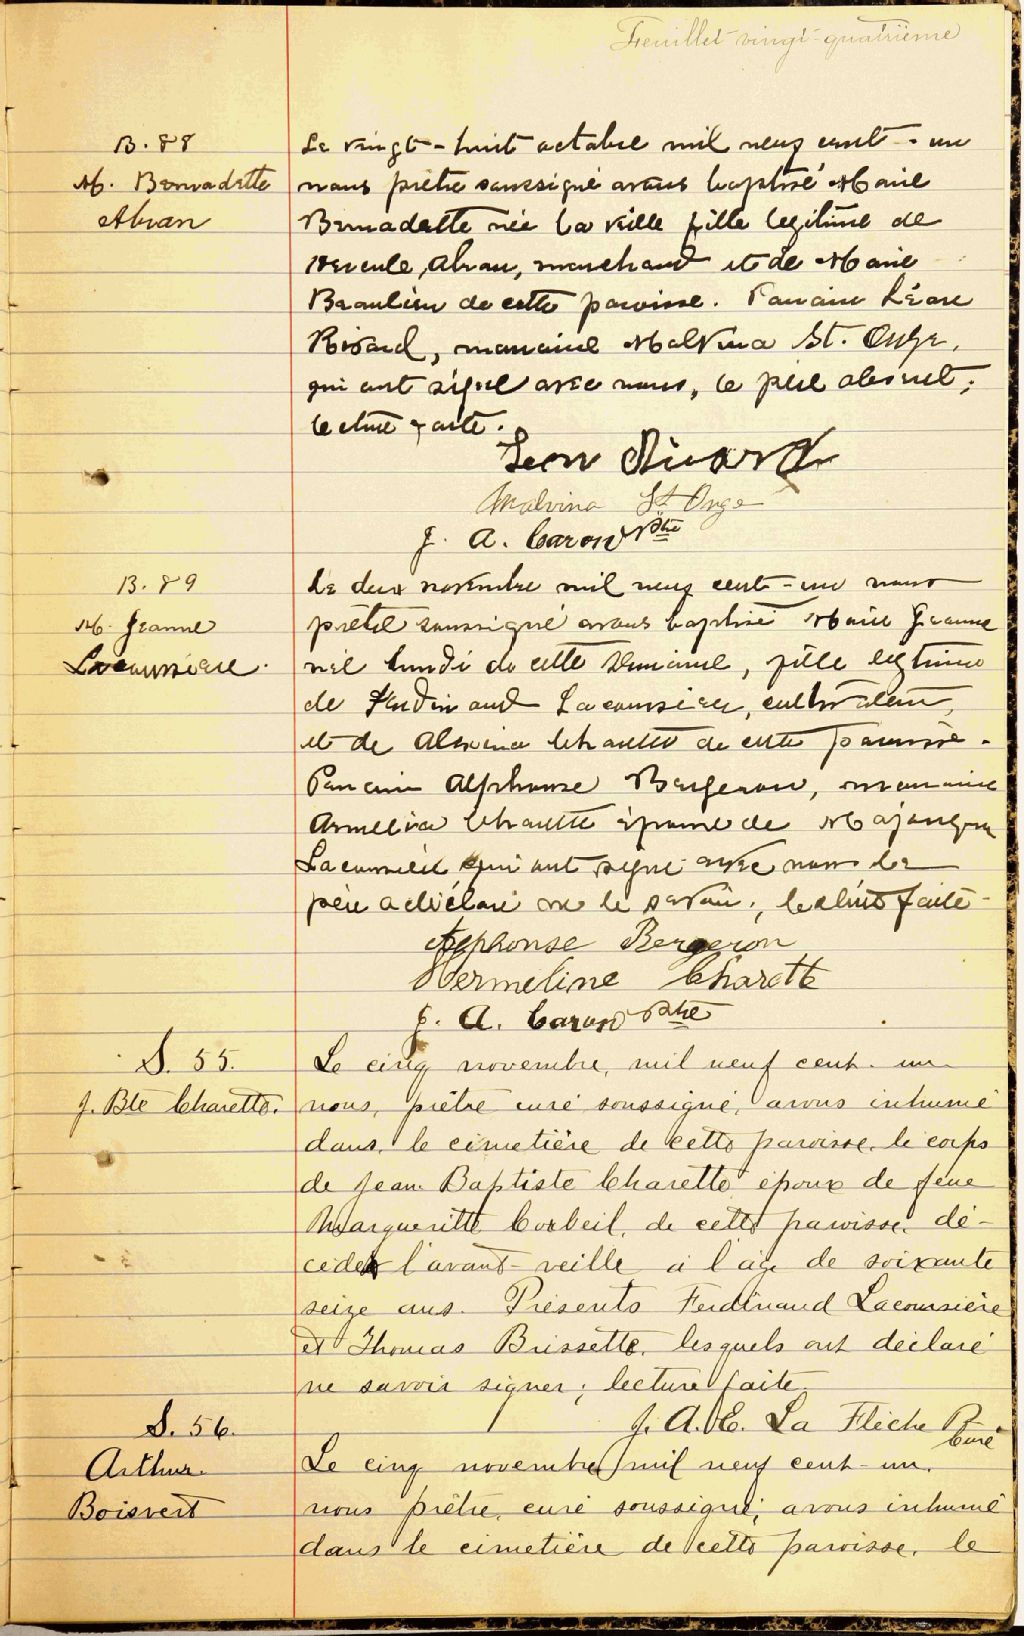 Feuillet vingt-quatrième
B. 88
M. Bernadette
Abran
Le vingt-huit octobre mil neuf cent-un
nous prêtre soussigné avons baptisé Marie
Bernadette née la veille fille legitime de
Hercule Abran, marchand et de Marie
Beaulieu de cette paroisse. Parrain Léon
Rivard, marraine Malvina St. Onge,
qui ont signé avec nous, le père absent;
lecture faite.
Leon Rivard
Malvina St Onge
J. A. Caron Ptre
B. 89
M. Jeanne
Lacoursière.
Le deux novembre mil neuf cent-un nous
prêtre soussigné avons baptisé Marie Jeanne
née lundi de cette semaine, fille legitime
de Ferdinand Lacoursière, cultivateur,
et de Charette de cette paroisse.
Parrain Alphonse Bergeron, marraine
Charette épouse de
Lacoursière qui ont signé avec nous le
père a déclaré ne le savoir; lecture faite-
Alphonse Bergeron
Hermeline Charette
J. A. Caron Ptre
S. 55.
J. Bte Charette.
Le cinq novembre, mil neuf cent-un
nous, prêtre curé soussigné, avons inhumé
dans le cimetière de cette paroisse, le corps
de Jean Baptiste Charette époux de feue
Marguerite Corbeil, de cette paroisse, dé-
cédé l'avant-veille à l'âge de soixante
seize ans. Présents Ferdinand Lacoursière
et Thomas Brissette, lesquels ont déclaré
ne savoir signer; lecture faite.
J. A. E. La Flèche Ptre
Curé
S. 56.
Arthur
Boisvert
Le cinq novembre mil neuf cent-un,
nous prêtre, curé soussigné, avons inhumé
dans le cimetière de cette paroisse, le